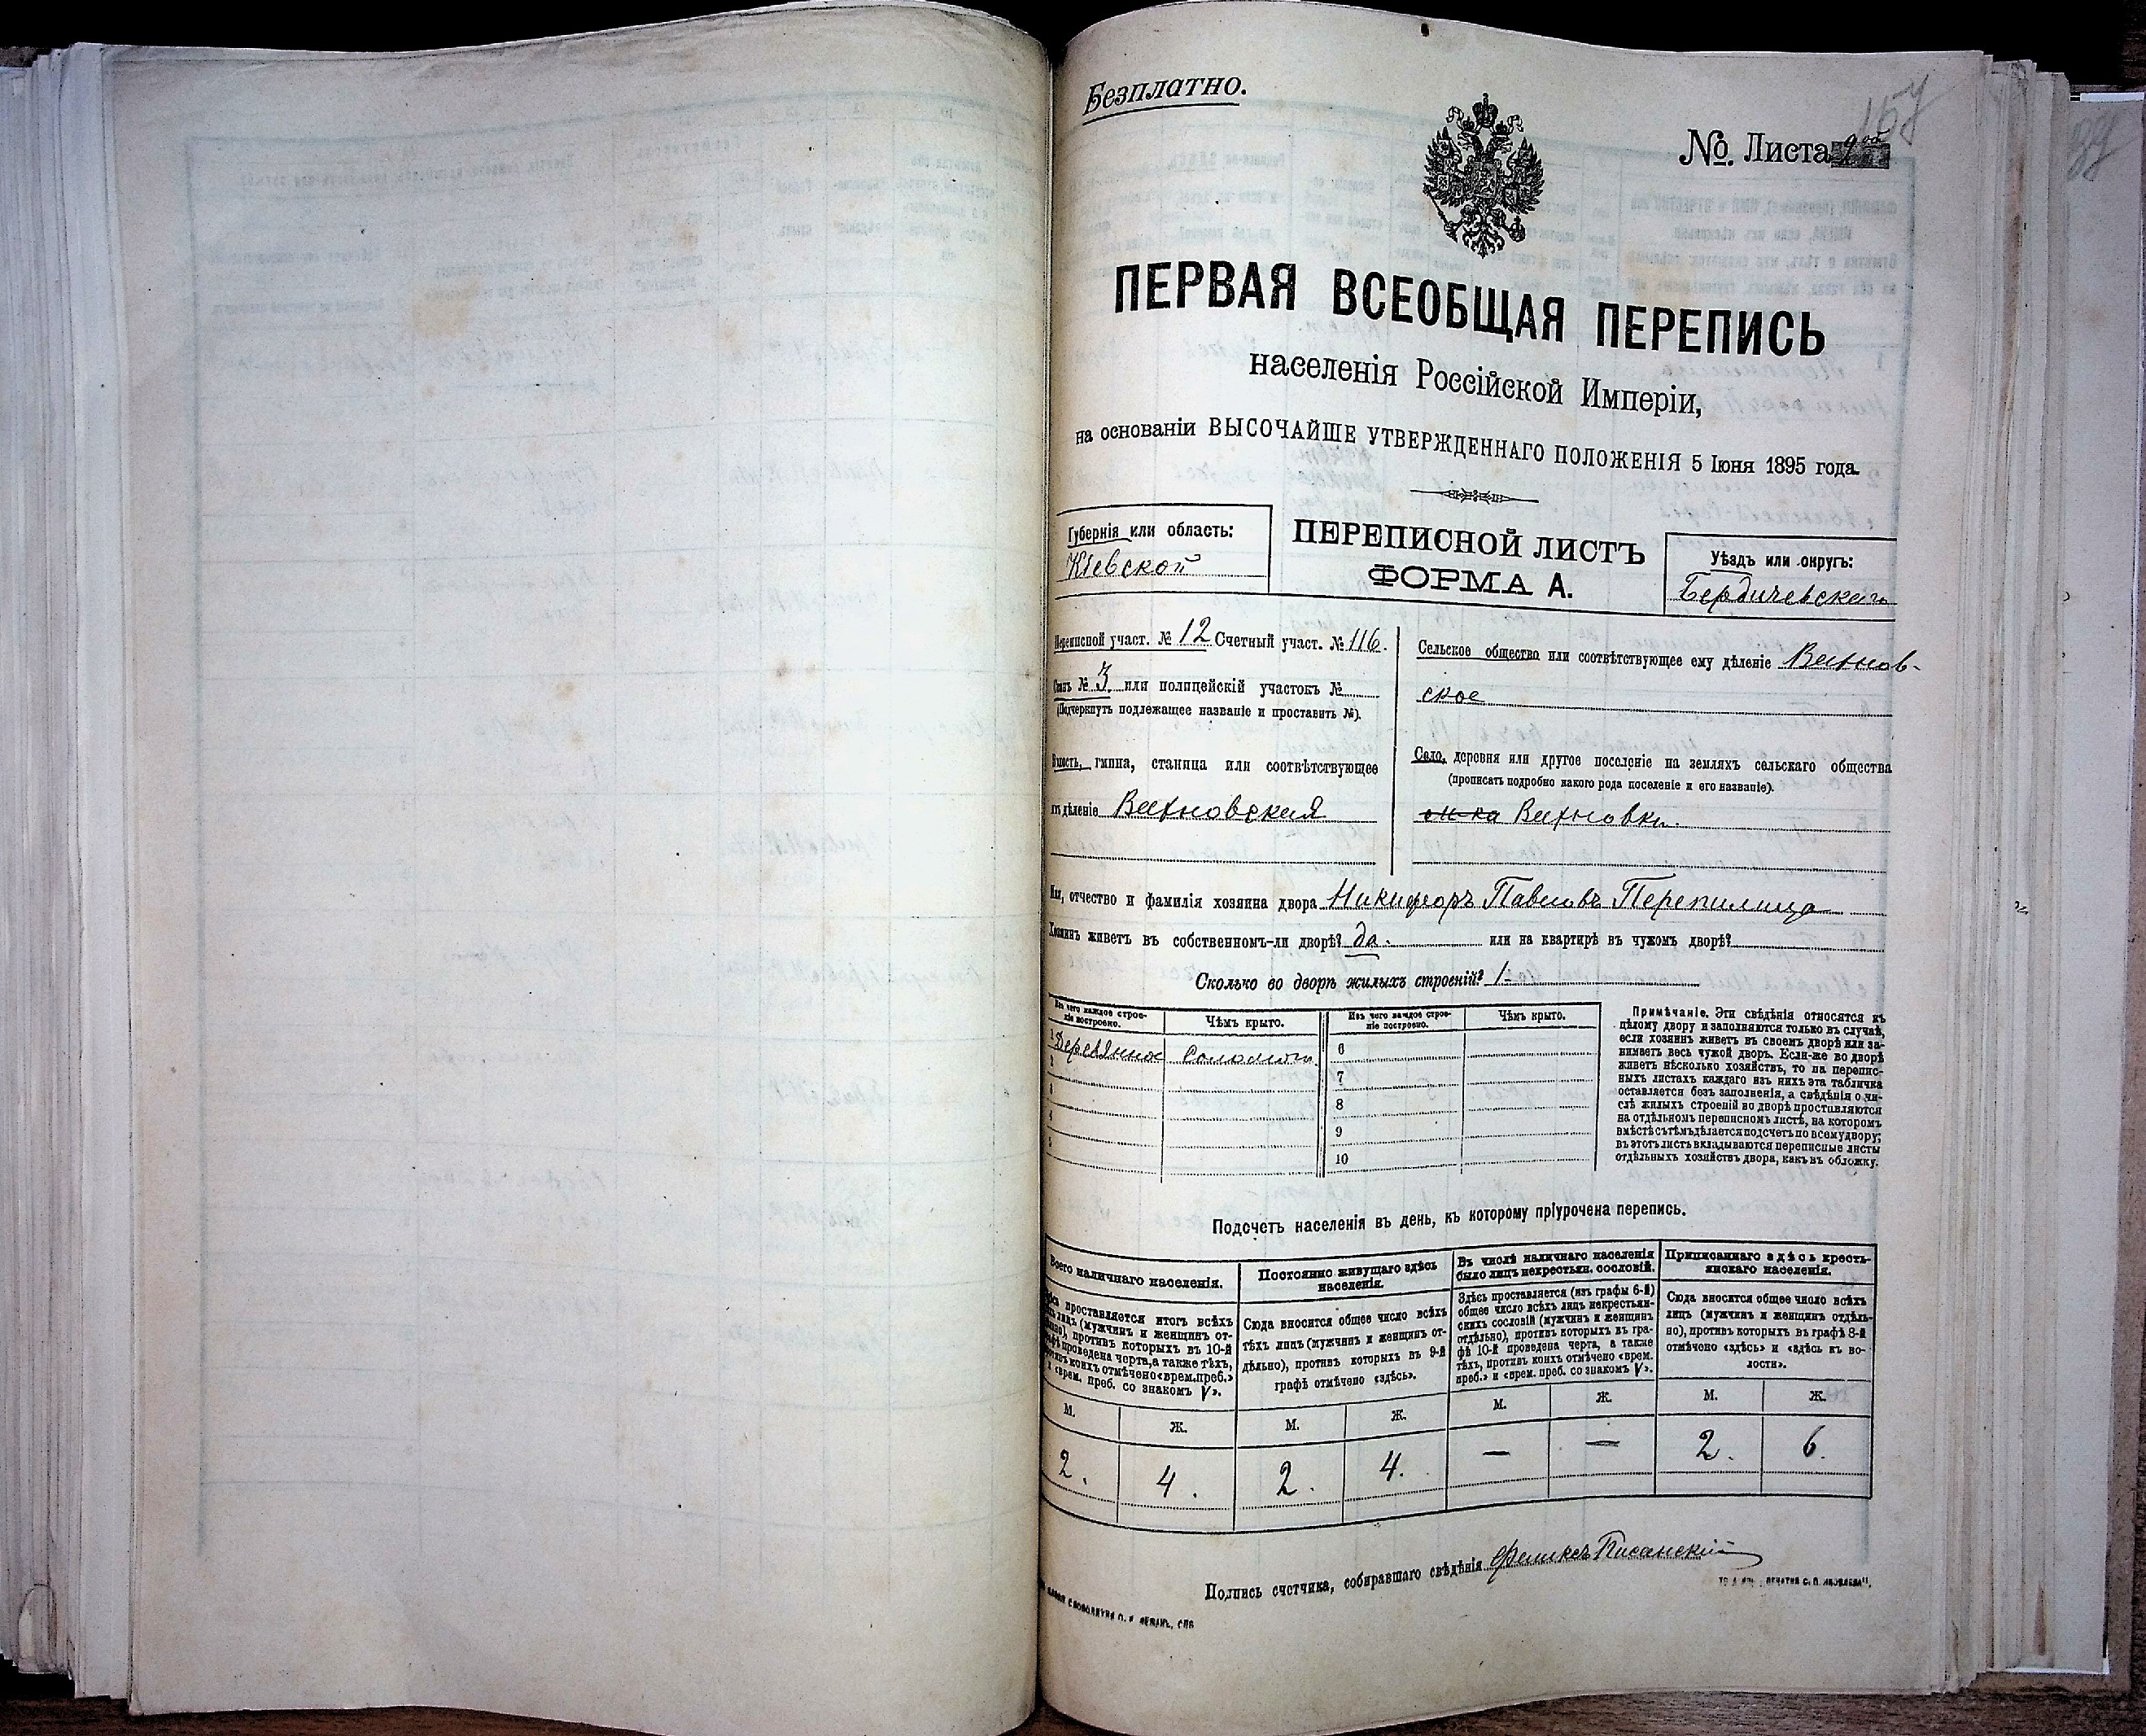 Безплатно.
№ Листа
ПЕРВАЯ ВСЕОБЩАЯ ПЕРЕПИСЬ
населенія Россійской Имперіи,
на основаніи ВЫСОЧАЙШЕ УТВЕРЖДЕННАГО ПОЛОЖЕНІЯ 5 Іюня 1895 года.
Губернія или область:
Кіевской
ПЕРЕПИСНОЙ ЛИСТЪ
ФОРМА А.
Уѣздъ или округъ:
Бердичевскаго
Переписной участ. № 12 Счетный участ. № 116.
Станъ № 3. или полицейскій участокъ №
(Подчеркнуть подлежащее названіе и проставить №).
Волость, гмина, станица или соотвѣтствующее
имъ дѣленіе Вахновская
Сельское общество или соотвѣтствующее ему дѣленіе Вахнов-
ское
Село, деревня или другое поселеніе на земляхъ сельскаго общества
(прописать подробно какого рода поселеніе и его названіе).
Вахновка.
Имя, отчество и фамилія хозяина двора Никифоръ Павловъ Перепилица
Хозяинъ живетъ въ собственномъ-ли дворѣ? да. или на квартирѣ въ чужомъ дворѣ?
Сколько во дворѣ жилыхъ строеній? 1
Изъ чего каждое строе-
ніе построено.
Чѣмъ крыто.
Изъ чего каждое строе-
ніе построено.
Чѣмъ крыто.
1 Деревянное Соломой 6
2 7
3 8
4 9
5 10
Примѣчаніе. Эти свѣдѣнія относятся къ
цѣлому двору и заполняются только въ случаѣ,
если хозяинъ живетъ въ своемъ дворѣ или за-
нимаетъ весь чужой дворъ. Если-же во дворѣ
живетъ нѣсколько хозяйствъ, то на перепис-
ныхъ листахъ каждаго изъ нихъ эта табличка
оставляется безъ заполненія, а свѣдѣнія о чи-
слѣ жилыхъ строеній во дворѣ проставляются
на отдѣльномъ переписномъ листѣ, на которомъ
вмѣстѣ съ тѣмъ дѣлается подсчетъ по всему двору;
въ этотъ листъ вкладываются переписные листы
отдѣльныхъ хозяйствъ двора, какъ въ обложку.
Подсчетъ населенія въ день, къ которому пріурочена перепись.
Всего наличнаго населенія.
Здѣсь проставляется итогъ всѣхъ
тѣхъ лицъ (мужчинъ и женщинъ от-
дѣльно), противъ которыхъ въ 10-й
графѣ проведена черта, а также тѣхъ,
противъ коихъ отмѣчено «врем. преб.»
и «врем. преб. со знакомъ V».
М. Ж.
2. 4.
Постоянно живущаго здѣсь
населенія.
Сюда вносится общее число всѣхъ
тѣхъ лицъ (мужчинъ и женщинъ от-
дѣльно), противъ которыхъ въ 9-й
графѣ отмѣчено «здѣсь».
М. Ж.
2. 4.
Въ числѣ наличнаго населенія
было лицъ некрестьян. сословій.
Здѣсь проставляется (изъ графы 6-й)
общее число всѣхъ лицъ некрестьян-
скихъ сословій (мужчинъ и женщинъ
отдѣльно), противъ которыхъ въ гра-
фѣ 10-й проведена черта, а также
тѣхъ, противъ коихъ отмѣчено «врем.
преб.» и «врем. преб. со знакомъ V».
М. Ж.
— —
Приписаннаго здѣсь кресть-
янскаго населенія.
Сюда вносится общее число всѣхъ
лицъ (мужчинъ и женщинъ отдѣль-
но), противъ которыхъ въ графѣ 8-й
отмѣчено «здѣсь» и «здѣсь къ во-
лости».
М. Ж.
2. 6.
Подпись счетчика, собиравшаго свѣдѣнія Феликсъ Писанскій